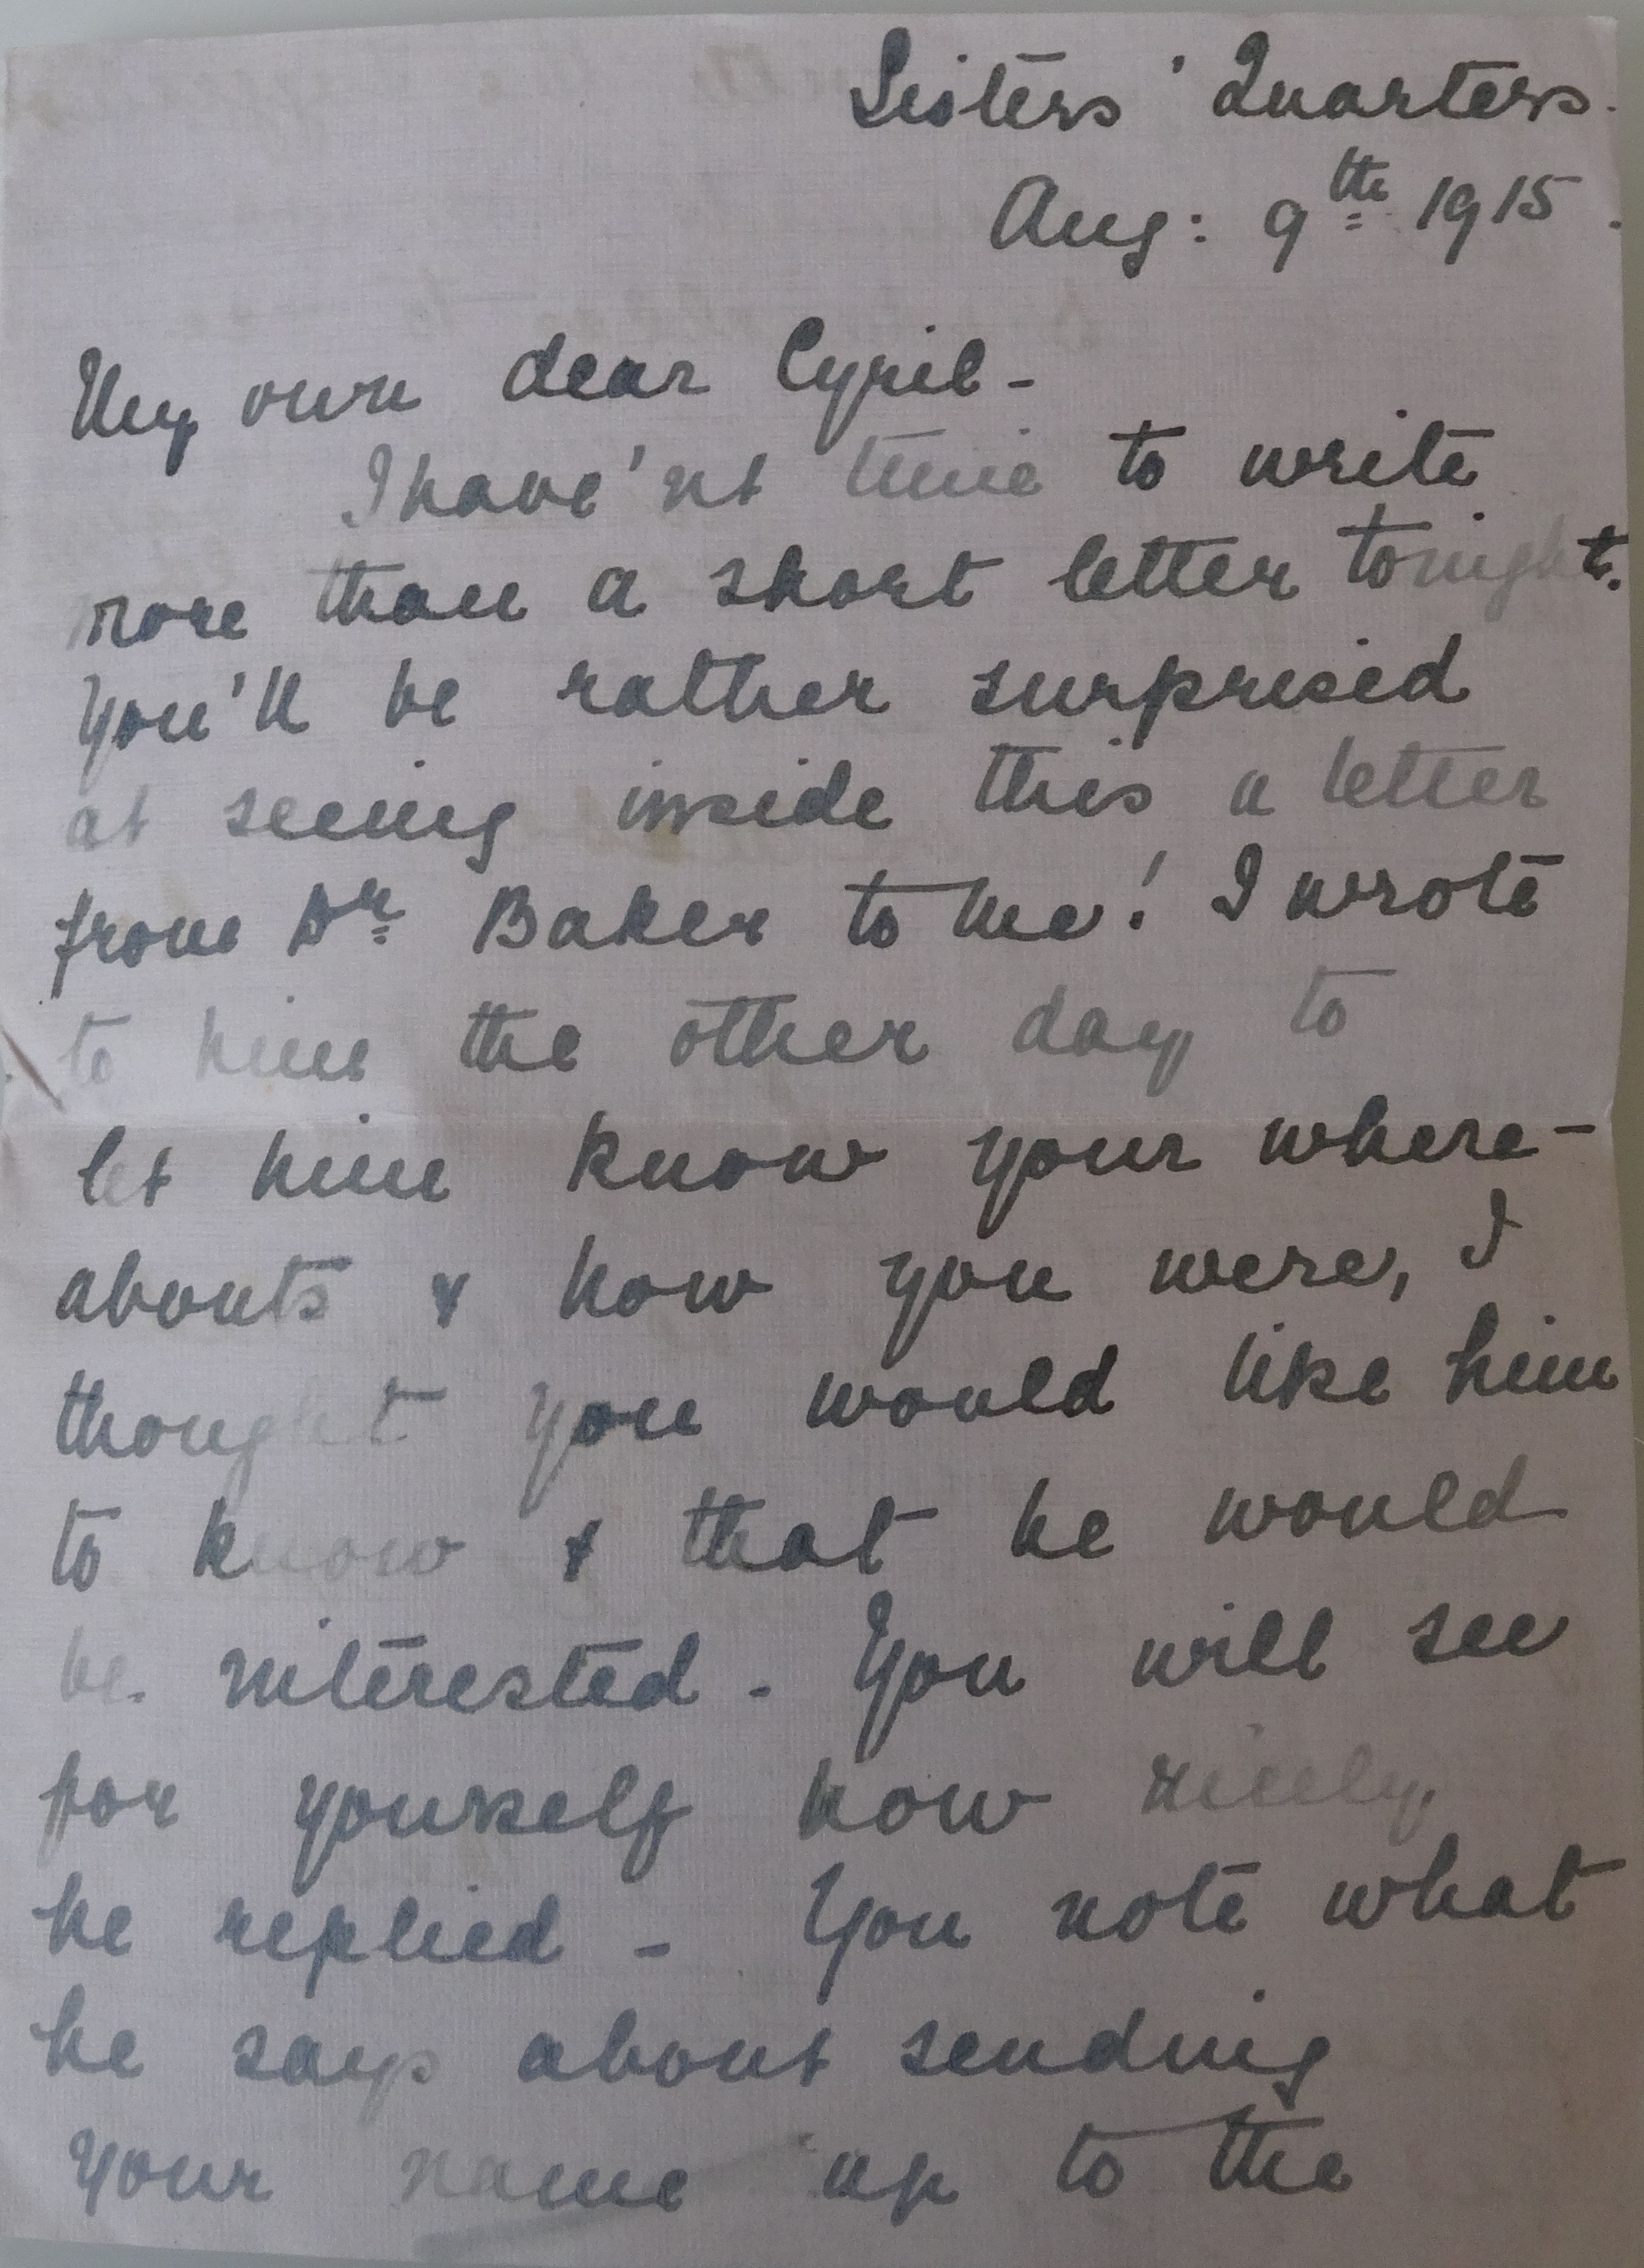 Sisters' Quarters.
Aug: 9th 1915.
My own dear Cyril -
I have'nt time to write
more than a short letter tonight.
You'll be rather surprised
at seeing inside this a letter
from Dr Baker to me! I wrote
to him the other day to
let him know your where-
abouts & how you were, I
thought you would like him
to know & that he would
be interested. You will see
for yourself how nicely
he replied - You note what
he says about sending
your name up to the